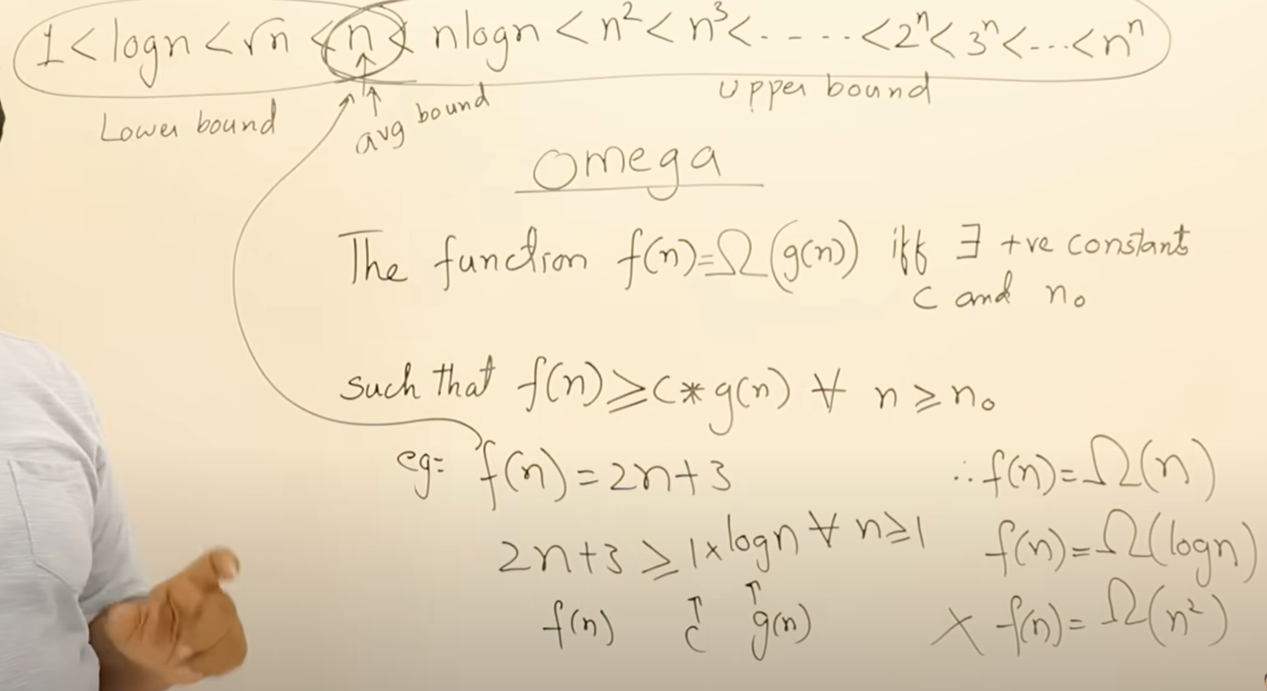 1 < logn < √n < n < nlogn < n² < n³ < - - - - - < 2ⁿ < 3ⁿ < ... < nⁿ
Lower bound
avg bound
Upper bound
Omega
The function f(n)=Ω(g(n)) iff ∃ +ve constants
c and n₀
such that f(n) ≥ c * g(n) ∀ n ≥ n₀
eg= f(n) = 2n+3
2n+3 ≥ 1×logn ∀ n≥1
f(n) c g(n)
∴ f(n)=Ω(n)
f(n)=Ω(logn)
× f(n)=Ω(n²)